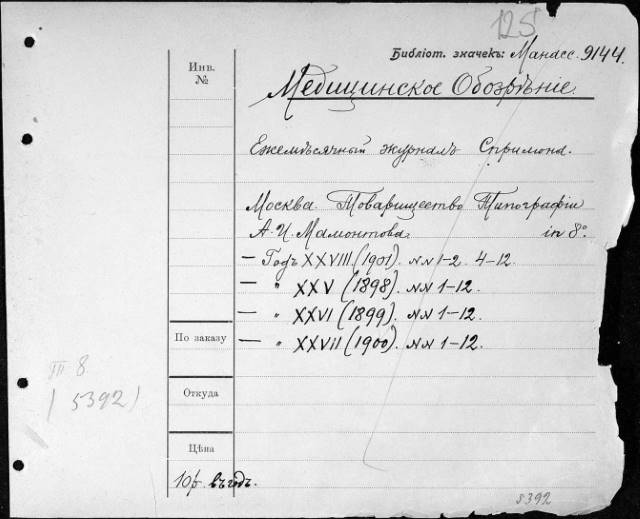 125
Библіот. значекъ: Манасс. 9144.
Инв.
№
Медицинское Обозрѣніе
Ежемѣсячный журналъ Спримона.
Москва. Товарищество Типографіи
А. И. Мамонтова. in 8°
— Годъ XXVIII (1901). №№ 1–2. 4–12.
— " XXV (1898). №№ 1–12.
— " XXVI (1899). №№ 1–12.
— " XXVII (1900). №№ 1–12.
По заказу
III 8
(5392)
Откуда
Цѣна
10р. въ годъ.
5392